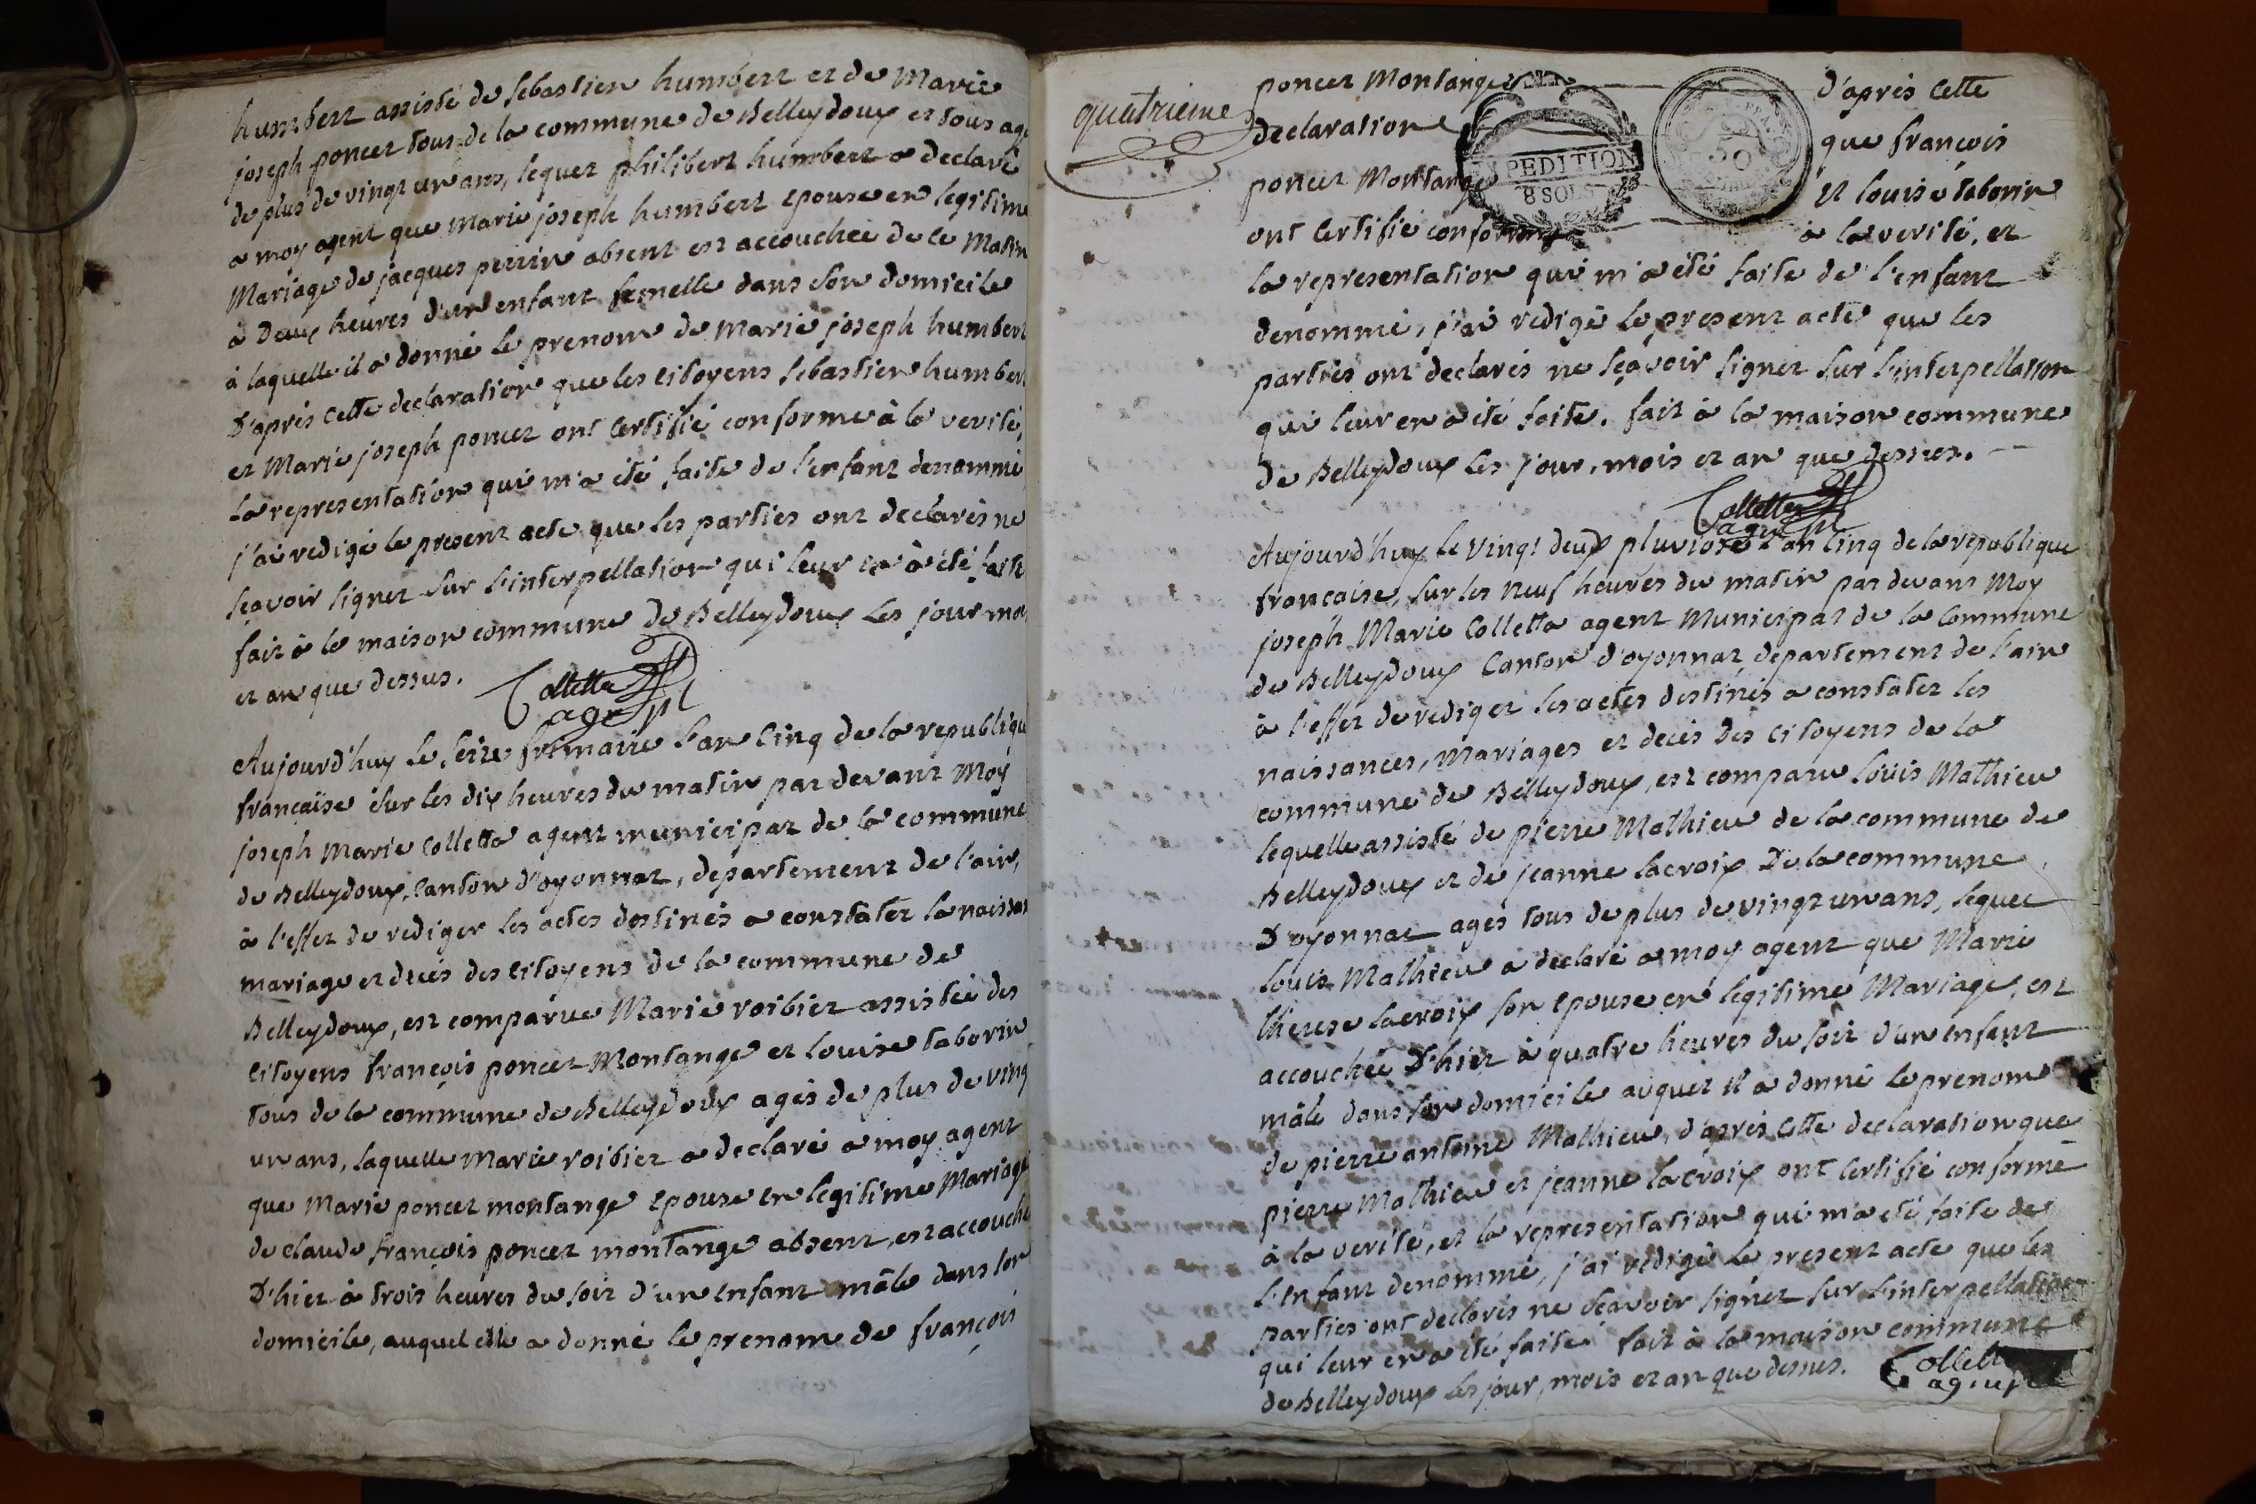 humbert assisté de sebastien humbert et de Marie
joseph poncet tous de la commune de Belleydoux et tous agé
de plus de vingt un ans, lequel philibert humbert a declaré
a moy agent que marie joseph humbert epouse en legitime
Mariage de jacques perrin absent est accouchée de ce Matin
à Deux heures d'un enfant femelle dans son domicile
à laquelle il a donné le prenom de marie joseph humbert
D'après cette declaration que les citoyens sebastien humbert
et Marie joseph poncet ont certifié conforme à la verité,
la representation qui m'a été faite de l'enfant denommé
j'ai redigé le present acte que les parties ont declarés ne
sçavoir signer sur l'interpellation qui leur en a été faite
fait à la maison commune de Belleydoux les jour moi
et an que dessus.
Colletta
agent
Aujourd'huy le seize frimaire l'an cinq de la republique
française sur les dix heures du matin par devant Moy
joseph marie Colletta agent municipal de la commune
de Belleydoux, canton d'oyonnaz, departement de l'ain,
à l'effet de rediger les actes destinés a constater la naissan
mariage et decés des citoyens de la commune de
Belleydoux, est comparue Marie roibier assistée des
citoyens françois poncet Montange et Louise taborin
tous de la commune de Belleydoux agés de plus de ving
un ans, laquelle marie roibier a declaré a moy agent
que Marie poncet montange epouse en legitime Mariage
de claude françois poncet montange absent, est accouché
D'hier à trois heures du soir d'un enfant mâle dans son
domicile, auquel elle a donné le prenom de françois
quatrieme
poncet Montange d'après cette
declaration que françois
poncet Montange et louise taborin
ont certifié conforme à la verité, et
EXPEDITION
8 SOLS
la representation qui m'a été faite de l'enfant
denommé, j'ai redigé le present acte que les
parties ont declarés ne sçavoir signer sur l'interpellation
qui leur en a été faite. fait à la maison commune
de Belleydoux les jour, mois et an que dessus.
Colletta
agent
Aujourd'huy le vingt deux pluviose l'an cinq de la republique
française, sur les neuf heures du matin par devant Moy
joseph Marie Colletta agent Municipal de la Commune
de Belleydoux Canton d'oyonnaz departement de l'ain
à l'effet de rediger les actes destinés a constater les
naissances, mariages et decés des citoyens de la
commune de Belleydoux, est comparu louis Mathieu
lequelle assisté de pierre Mathieu de la commune de
Belleydoux et de jeanne lacroix De la commune
D'oyonnaz agés tous de plus de vingt un ans, lequel
louis Mathieu a declaré a moy agent que Marie
therese lacroix son epouse en legitime Mariage, est
accouchée D'hier à quatre heures du soir d'un enfant
mâle dans son domicile auquel il a donné le prenom
de pierre antoine Mathieu, d'après cette declaration que
pierre Mathieu et jeanne lacroix ont certifié conforme
à la verité, et la representation qui m'a été faite de
l'enfant denommé, j'ai redigé le present acte que les
parties ont declarés ne sçavoir signer sur l'interpellation
qui leur en a été faite fait à la maison commune
de Belleydoux les jour, mois et an que dessus.
Collett
agent